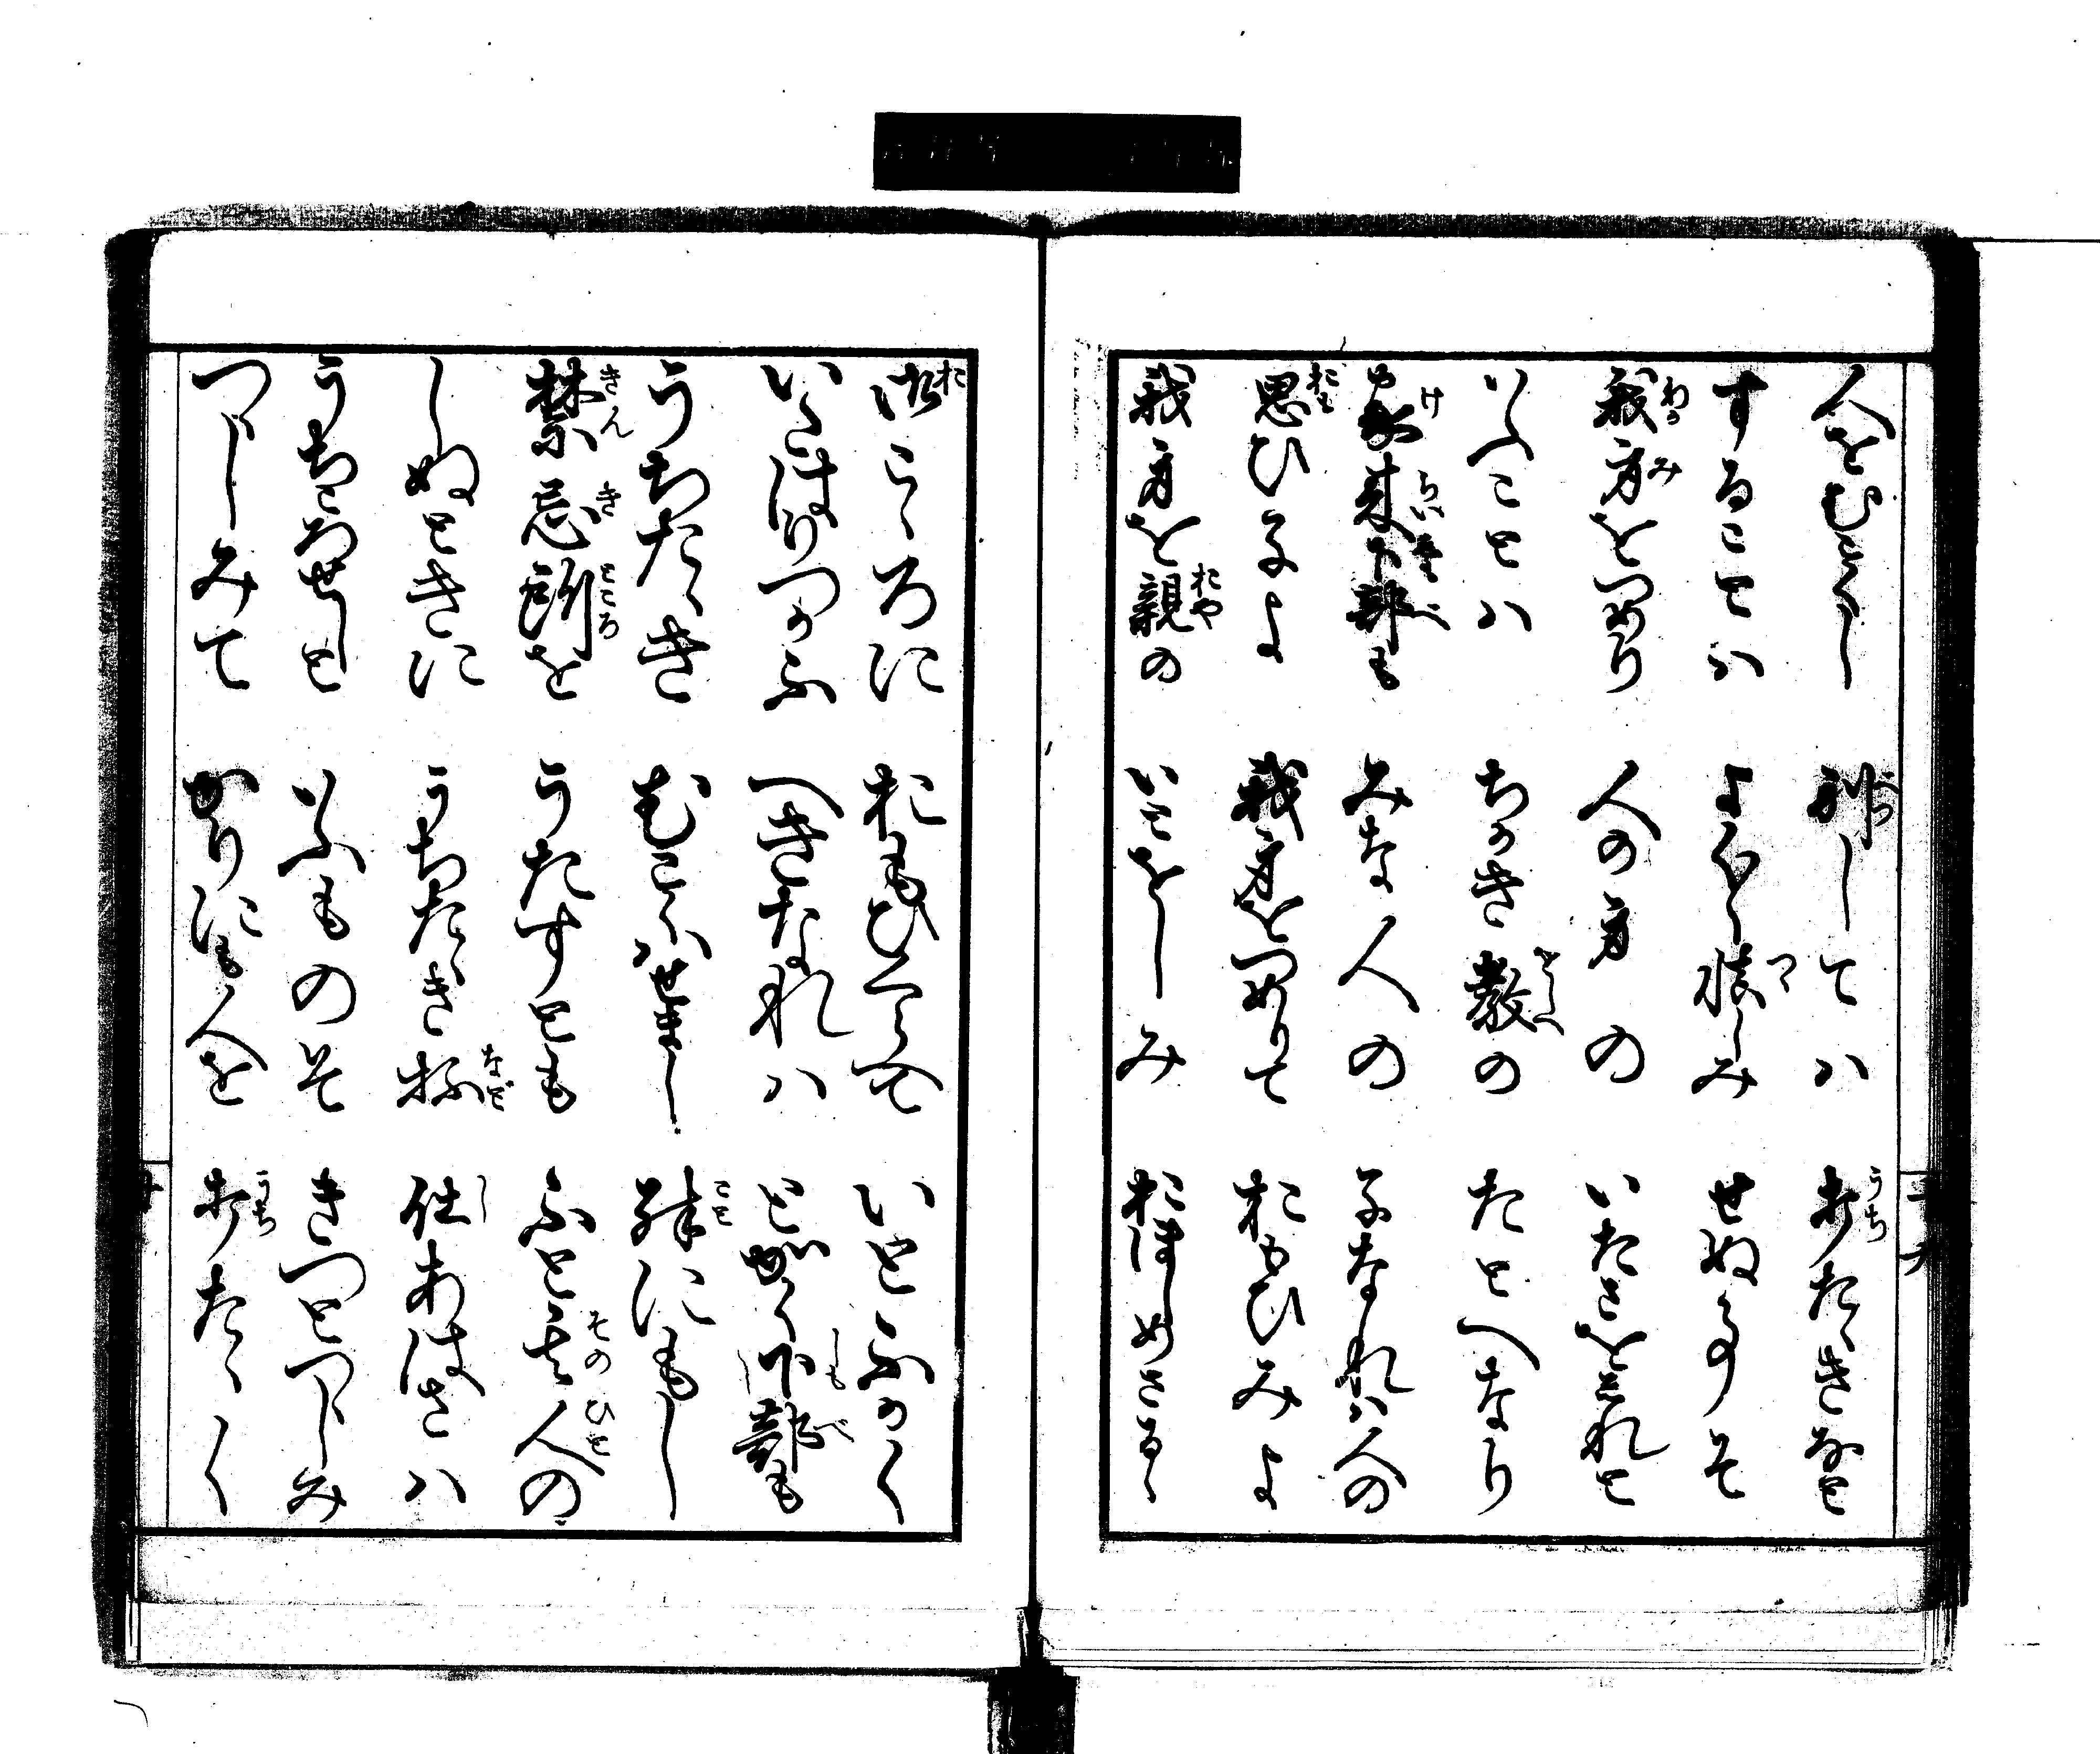 人をむごくし 別してハ 打たゝきなと
することハ よく／＼慎しみ せぬ事そ
我身をつめり 人の身の いたさをしれと
いふことハ ちかき教の たとへなり
家来下部も みな人の 子なれハ人の
思ひ子よ 我身をつめりて おもひみよ
我身を親の いとをしみ おほしめさるゝ
十九
御こゝろに おもひくらへて いとふかく
いたはりつかふ へきなれハ とかく下部も
うちたゝき むごふハせまし 殊にもし
禁忌所を うたすとも ふと其人の
しぬときに うちたゝき抔 仕あはさハ
うちころせしと いふものそ きつとつゝしみ
つゝしみて かりにも人を 打たゝく